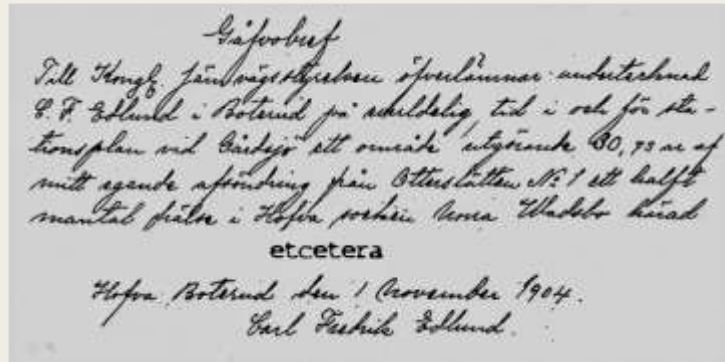 Gåfvobref
Till Kongl. Järnvägsstyrelsen öfverlämnar undertecknad
C. F. Edlund i Boterud på evärldelig tid i och för sta-
tionsplan vid Gårdsjö ett område utgörande 30,73 ar af
mitt egande afsöndring från Otterslätten No 1 ett halft
mantal frälse i Hofva socken Norra Wadsbo härad
etcetera
Hofva Boterud den 1 November 1904.
Carl Fredrik Edlund.